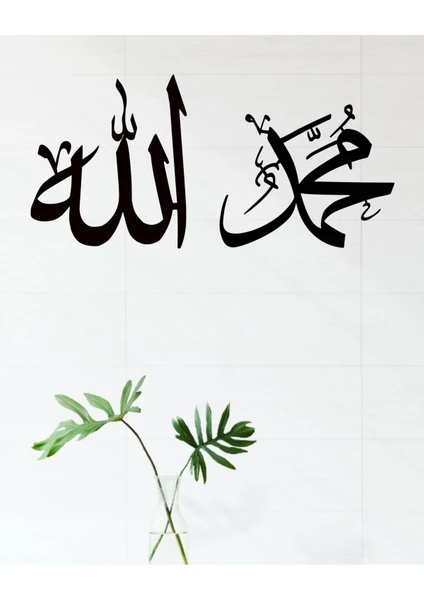 محمد الله